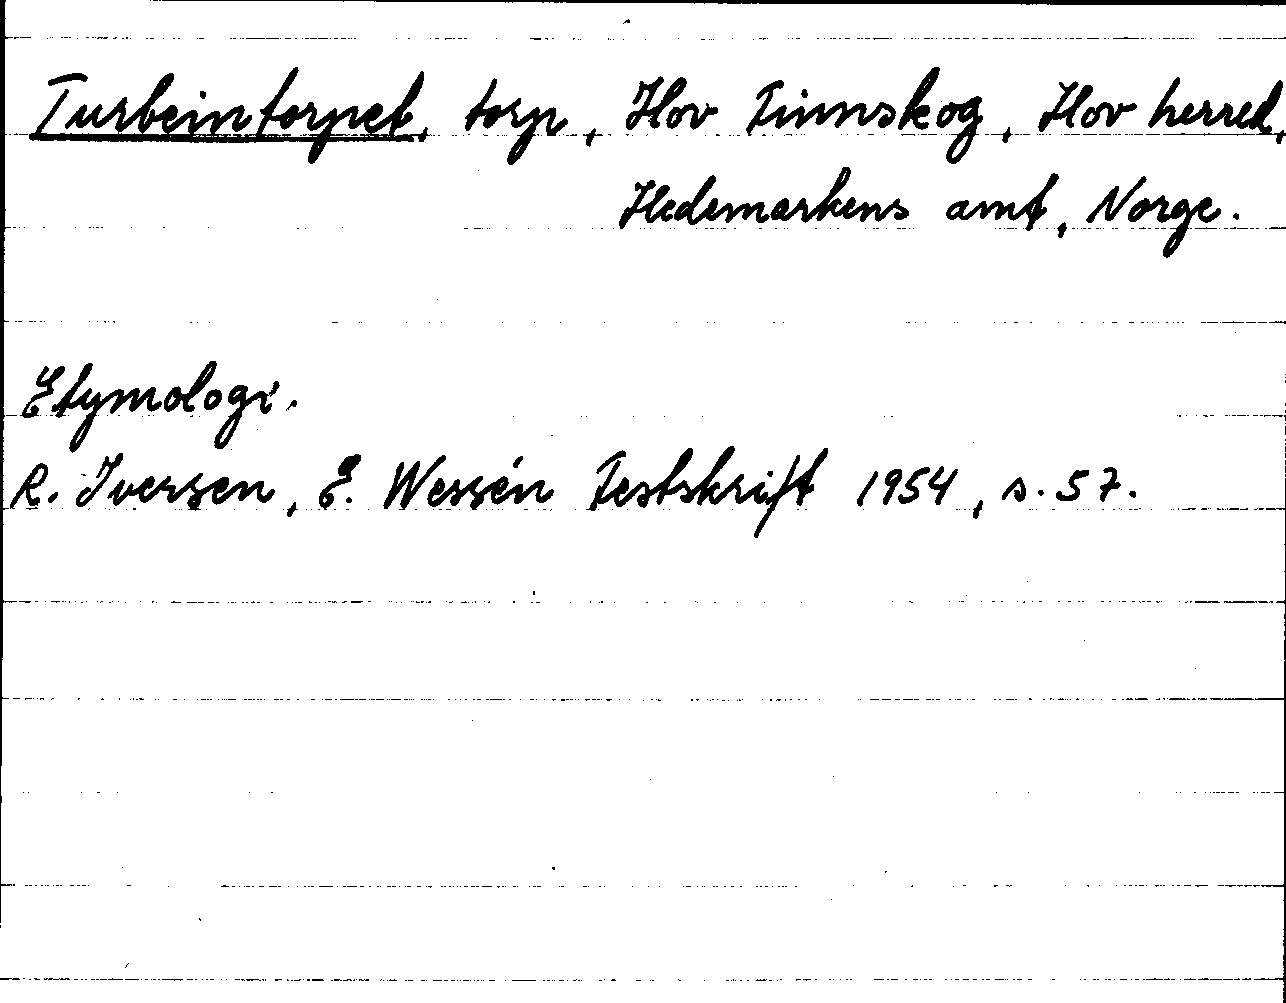 Turbeintorpet, torp, Hov Finnskog, Hov herred,
Hedemarkens amt, Norge.
Etymologi.
R. Iversen, E. Wessén Festskrift 1954, s. 57.